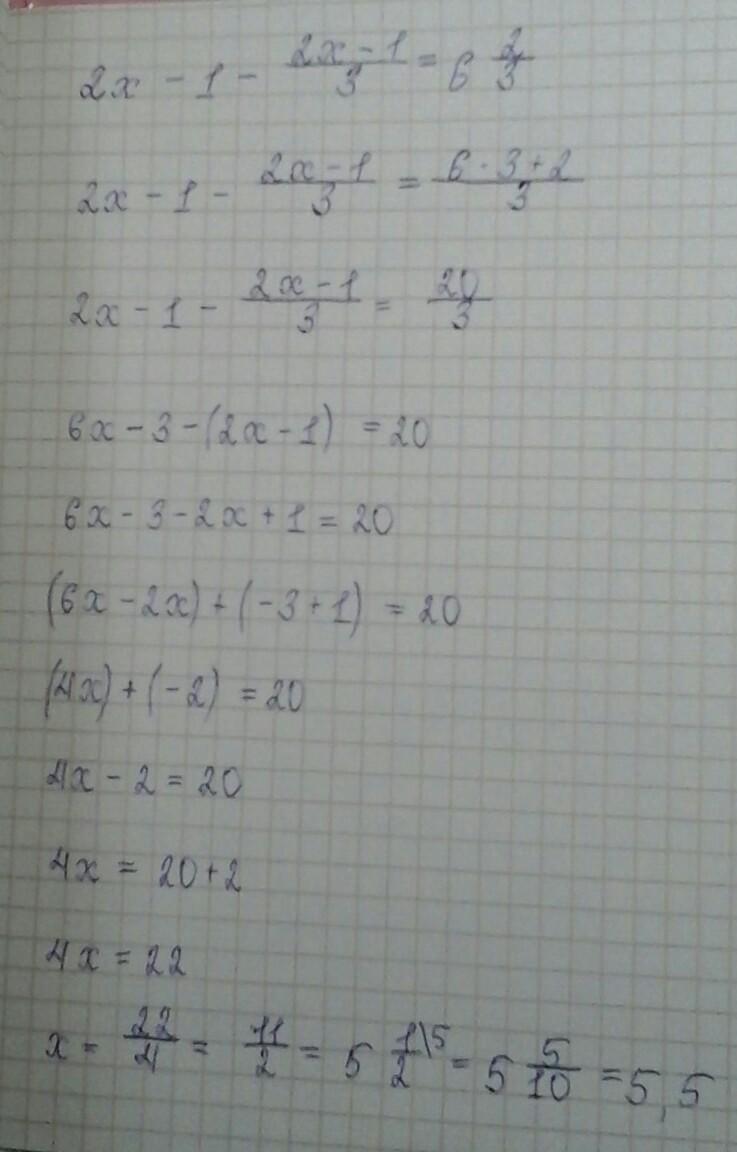 2x - 1 - (2x - 1)/3 = 6 2/3
2x - 1 - (2x - 1)/3 = (6 · 3 + 2)/3
2x - 1 - (2x - 1)/3 = 20/3
6x - 3 - (2x - 1) = 20
6x - 3 - 2x + 1 = 20
(6x - 2x) + (-3 + 1) = 20
(4x) + (-2) = 20
4x - 2 = 20
4x = 20 + 2
4x = 22
x = 22/4 = 11/2 = 5 1\5/2 = 5 5/10 = 5,5